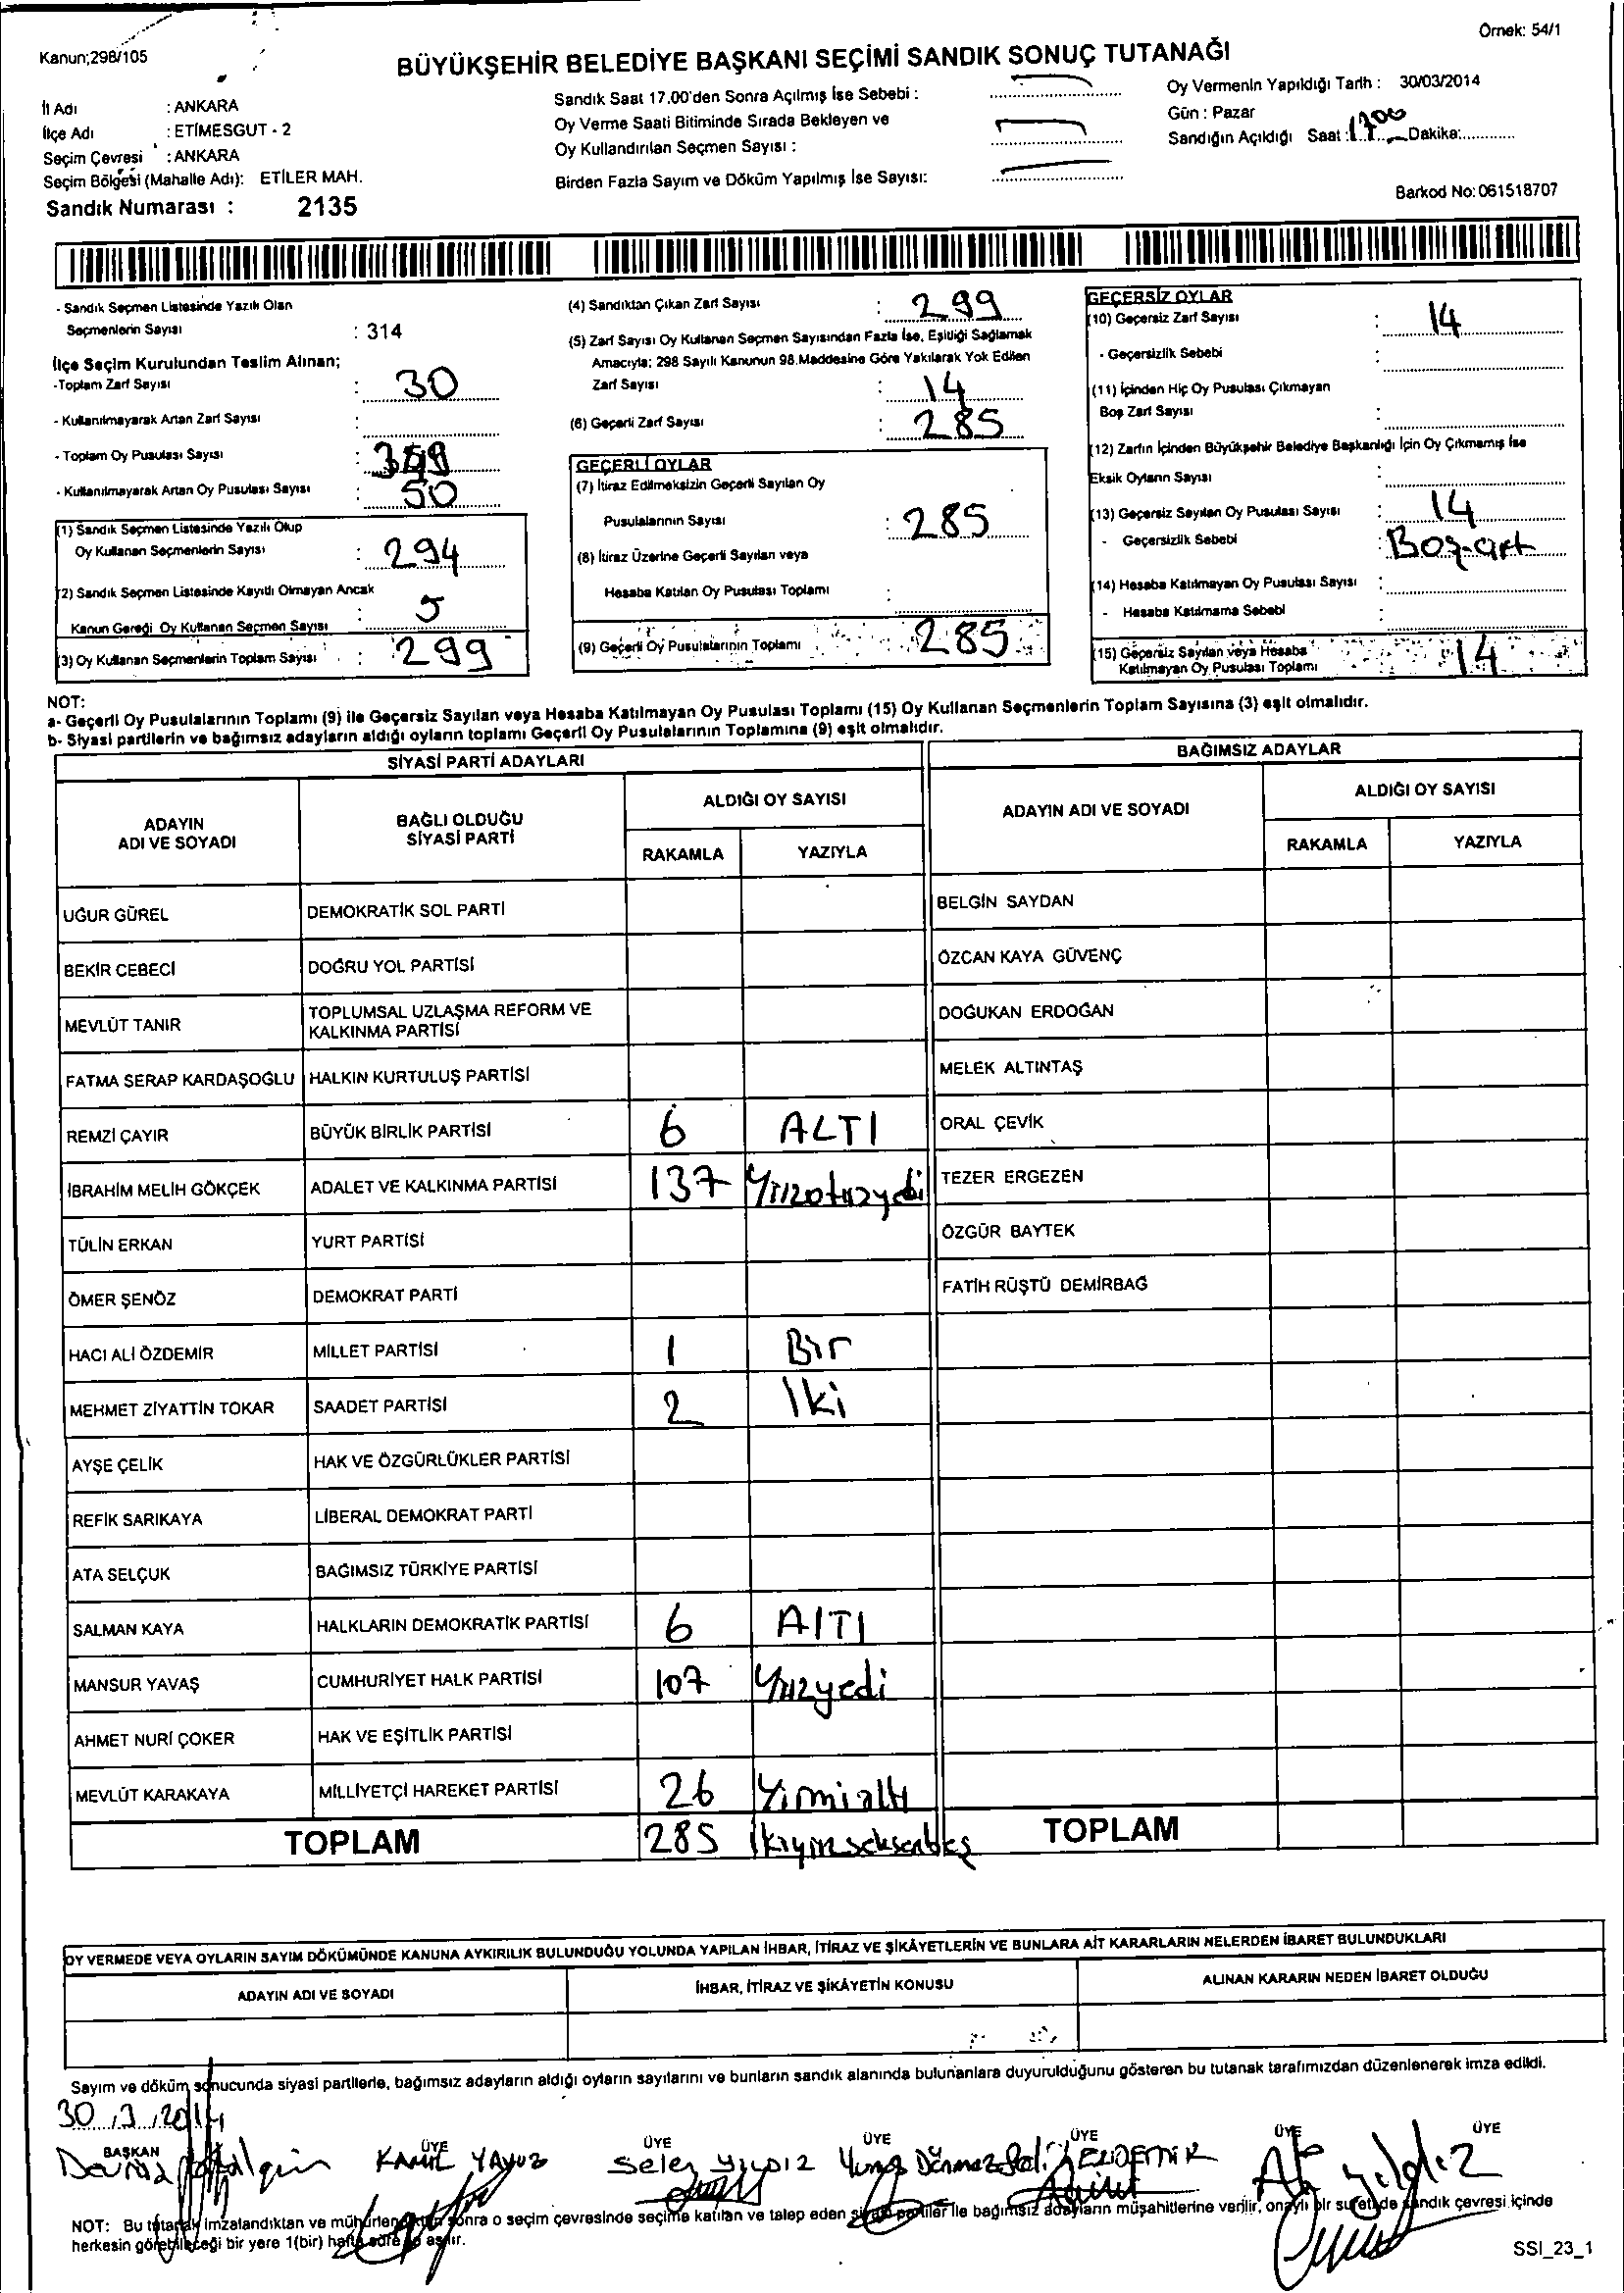 Kanun;298/105
Örnek: 54/1
BÜYÜKŞEHİR BELEDİYE BAŞKANI SEÇİMİ SANDIK SONUÇ TUTANAĞI
İl Adı : ANKARA
İlçe Adı : ETİMESGUT - 2
Seçim Çevresi : ANKARA
Seçim Bölgesi (Mahalle Adı): ETİLER MAH.
Sandık Numarası : 2135
Sandık Saat 17.00'den Sonra Açılmış İse Sebebi :
Oy Verme Saati Bitiminde Sırada Bekleyen ve
Oy Kullandırılan Seçmen Sayısı :
Birden Fazla Sayım ve Döküm Yapılmış İse Sayısı:
Oy Vermenin Yapıldığı Tarih : 30/03/2014
Gün : Pazar
Sandığın Açıldığı Saat : Dakika:
Barkod No: 061518707
- Sandık Seçmen Listesinde Yazılı Olan
Seçmenlerin Sayısı : 314
İlçe Seçim Kurulundan Teslim Alınan;
-Toplam Zarf Sayısı : 30
- Kullanılmayarak Artan Zarf Sayısı :
- Toplam Oy Pusulası Sayısı :
- Kullanılmayarak Artan Oy Pusulası Sayısı : 50
(1) Sandık Seçmen Listesinde Yazılı Olup
Oy Kullanan Seçmenlerin Sayısı : 294
(2) Sandık Seçmen Listesinde Kayıtlı Olmayan Ancak
Kanun Gereği Oy Kullanan Seçmen Sayısı : 5
(3) Oy Kullanan Seçmenlerin Toplam Sayısı : 299
(4) Sandıktan Çıkan Zarf Sayısı : 299
(5) Zarf Sayısı Oy Kullanan Seçmen Sayısından Fazla İse, Eşitliği Sağlamak
Amacıyla; 298 Sayılı Kanunun 98.Maddesine Göre Yakılarak Yok Edilen
Zarf Sayısı : 14
(6) Geçerli Zarf Sayısı : 285
GEÇERLİ OYLAR
(7) İtiraz Edilmeksizin Geçerli Sayılan Oy
Pusulalarının Sayısı : 285
(8) İtiraz Üzerine Geçerli Sayılan veya
Hesaba Katılan Oy Pusulası Toplamı :
(9) Geçerli Oy Pusulalarının Toplamı : 285
GEÇERSİZ OYLAR
(10) Geçersiz Zarf Sayısı : 14
- Geçersizlik Sebebi :
(11) İçinden Hiç Oy Pusulası Çıkmayan
Boş Zarf Sayısı :
(12) Zarfın İçinden Büyükşehir Belediye Başkanlığı İçin Oy Çıkmamış İse
Eksik Oyların Sayısı :
(13) Geçersiz Sayılan Oy Pusulası Sayısı : 14
- Geçersizlik Sebebi :
(14) Hesaba Katılmayan Oy Pusulası Sayısı :
- Hesaba Katılmama Sebebi :
(15) Geçersiz Sayılan veya Hesaba
Katılmayan Oy Pusulası Toplamı : 14
NOT:
a- Geçerli Oy Pusulalarının Toplamı (9) ile Geçersiz Sayılan veya Hesaba Katılmayan Oy Pusulası Toplamı (15) Oy Kullanan Seçmenlerin Toplam Sayısına (3) eşit olmalıdır.
b- Siyasi partilerin ve bağımsız adayların aldığı oyların toplamı Geçerli Oy Pusulalarının Toplamına (9) eşit olmalıdır.
SİYASİ PARTİ ADAYLARI
BAĞIMSIZ ADAYLAR
ADAYIN ADI VE SOYADI
BAĞLI OLDUĞU SİYASİ PARTİ
ALDIĞI OY SAYISI
RAKAMLA YAZIYLA
ADAYIN ADI VE SOYADI
ALDIĞI OY SAYISI
RAKAMLA YAZIYLA
UĞUR GÜREL DEMOKRATİK SOL PARTİ BELGİN SAYDAN
BEKİR CEBECİ DOĞRU YOL PARTİSİ ÖZCAN KAYA GÜVENÇ
MEVLÜT TANIR TOPLUMSAL UZLAŞMA REFORM VE KALKINMA PARTİSİ DOĞUKAN ERDOĞAN
FATMA SERAP KARDAŞOĞLU HALKIN KURTULUŞ PARTİSİ MELEK ALTINTAŞ
REMZİ ÇAYIR BÜYÜK BİRLİK PARTİSİ 6 ALTI ORAL ÇEVİK
İBRAHİM MELİH GÖKÇEK ADALET VE KALKINMA PARTİSİ 137 Yüzotuzyedi TEZER ERGEZEN
TÜLİN ERKAN YURT PARTİSİ ÖZGÜR BAYTEK
ÖMER ŞENÖZ DEMOKRAT PARTİ FATİH RÜŞTÜ DEMİRBAĞ
HACI ALİ ÖZDEMİR MİLLET PARTİSİ 1 Bir
MEHMET ZİYATTİN TOKAR SAADET PARTİSİ 2 İki
AYŞE ÇELİK HAK VE ÖZGÜRLÜKLER PARTİSİ
REFİK SARIKAYA LİBERAL DEMOKRAT PARTİ
ATA SELÇUK BAĞIMSIZ TÜRKİYE PARTİSİ
SALMAN KAYA HALKLARIN DEMOKRATİK PARTİSİ 6 AlTI
MANSUR YAVAŞ CUMHURİYET HALK PARTİSİ 107 Yüzyedi
AHMET NURİ ÇOKER HAK VE EŞİTLİK PARTİSİ
MEVLÜT KARAKAYA MİLLİYETÇİ HAREKET PARTİSİ 26 Yirmialtı
TOPLAM 285 İkiyüzseksenbeş TOPLAM
OY VERMEDE VEYA OYLARIN SAYIM DÖKÜMÜNDE KANUNA AYKIRILIK BULUNDUĞU YOLUNDA YAPILAN İHBAR, İTİRAZ VE ŞİKÂYETLERİN VE BUNLARA AİT KARARLARIN NELERDEN İBARET BULUNDUKLARI
ADAYIN ADI VE SOYADI İHBAR, İTİRAZ VE ŞİKÂYETİN KONUSU ALINAN KARARIN NEDEN İBARET OLDUĞU
Sayım ve döküm sonucunda siyasi partilerle, bağımsız adayların aldığı oyların sayılarını ve bunların sandık alanında bulunanlara duyurulduğunu gösteren bu tutanak tarafımızdan düzenlenerek imza edildi.
30.3.2014
BAŞKAN ÜYE ÜYE ÜYE ÜYE ÜYE ÜYE
KAMİL YAVUZ YILDIZ
NOT: Bu tutanak imzalandıktan ve mühürlendikten sonra o seçim çevresinde seçime katılan ve talep eden siyasi partiler ile bağımsız adayların müşahitlerine verilir, onaylı bir sureti de sandık çevresi içinde
herkesin görebileceği bir yere 1(bir) hafta süre ile asılır.
SSI_23_1